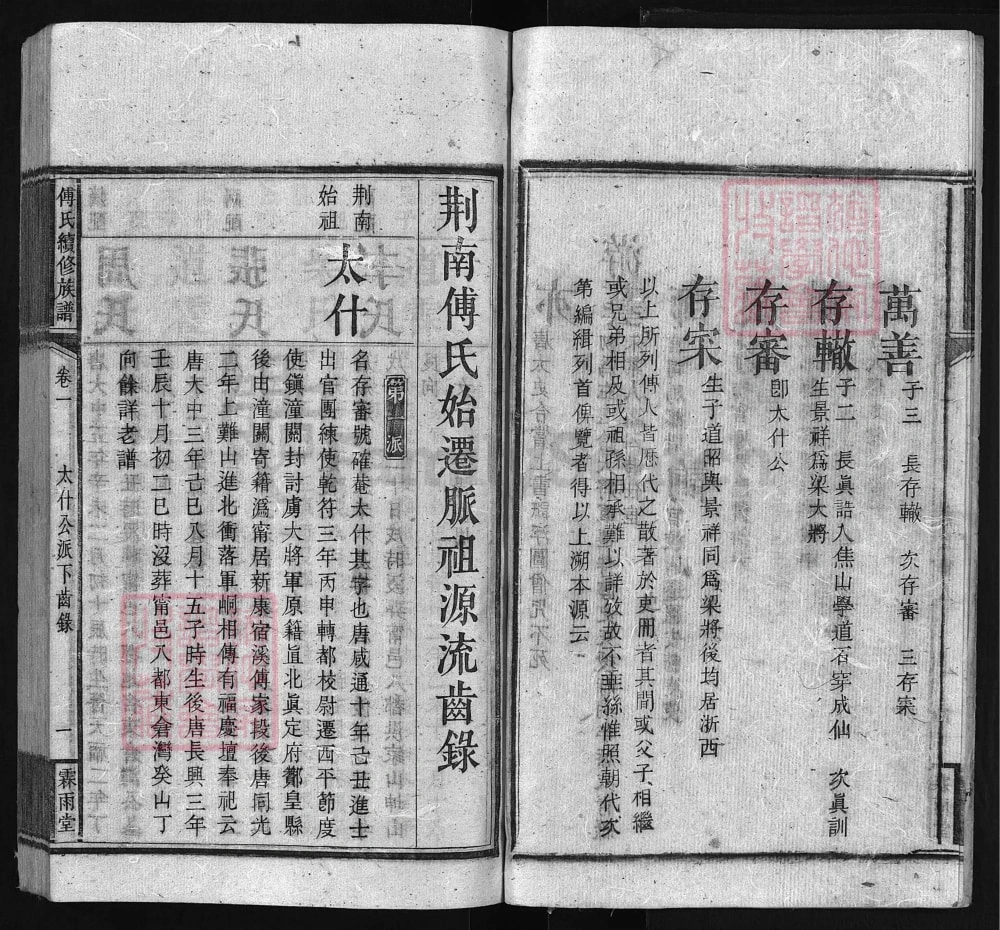 萬善
子三　長存轍　次存審　三存寀
存轍
子二　長眞誥入焦山學道石穿成仙　次眞訓
生景祥爲梁大將
存審
卽太什公
存寀
生子道昭與景祥同爲梁將後均居浙西
以上所列傳人皆歷代之散著於吏冊者其間或父子相繼
或兄弟相及或祖孫相承難以詳攷故不垂絲惟照朝代次
第編緝列首俾覽者得以上溯本源云
荆南傅氏始遷脈祖源流齒錄
荆南
始祖
太什
第一派
名存審號確菴太什其字也唐咸通十年己丑進士
出官團練使乾符三年丙申轉都校尉遷西平節度
使鎭潼關封討虜大將軍原籍直北眞定府鄰皇縣
後由潼關寄籍溈甯居新康宿溪傅家段後唐同光
二年上難山進北衝落軍峒相傳有福慶壇奉祀云
唐大中三年己巳八月十五子時生後唐長興三年
壬辰十月初二巳時沒葬甯邑八都東倉灣癸山丁
向餘詳老譜
傅氏續修族譜
卷一
太什公派下齒錄
一
霖雨堂